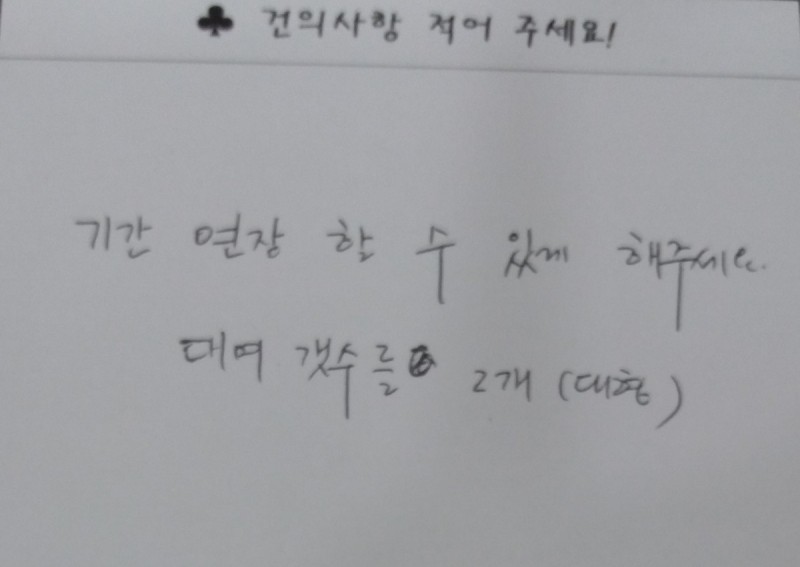 ♣ 건의사항 적어 주세요!
기간 연장 할 수 있게 해주세요.
대여 갯수를 2개 (대형)